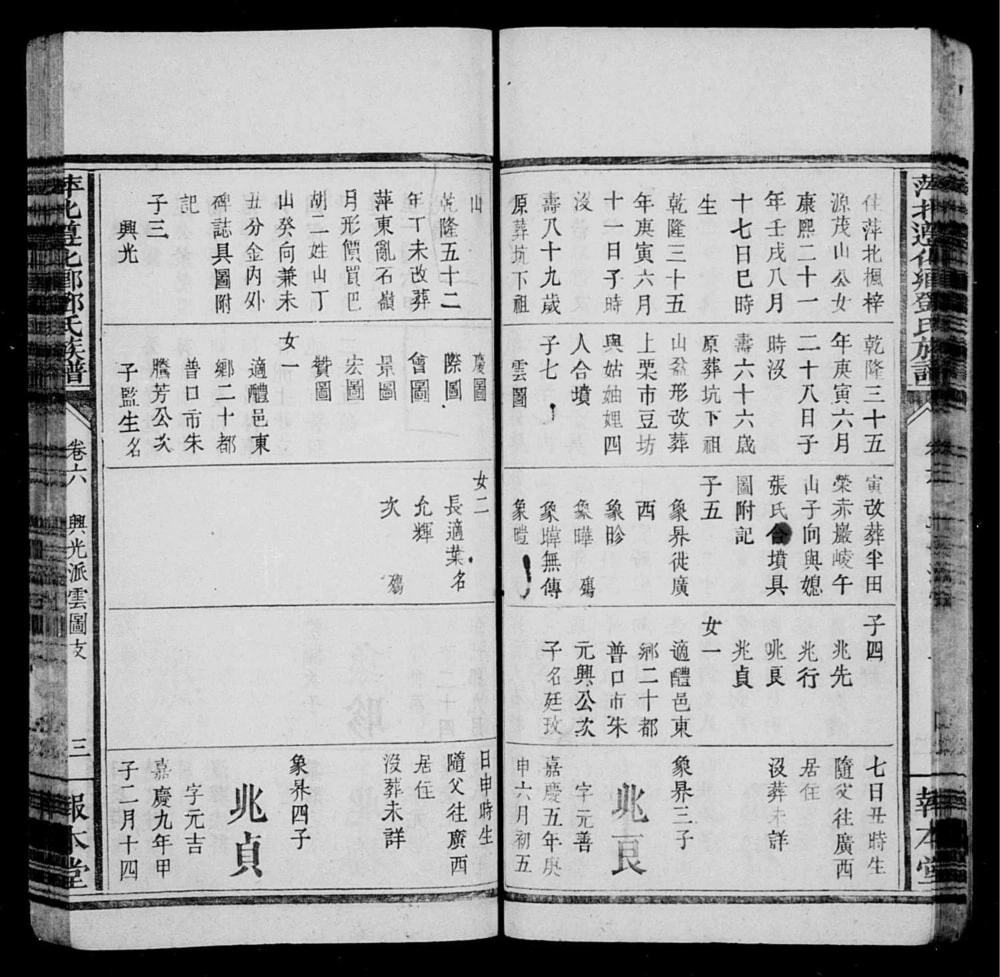 萍北遵化鄉鄧氏族譜
報本堂
住萍北楓梓
源茂山公女
康熙二十一
年壬戌八月
十七日巳時
生
乾隆三十五
年庚寅六月
十一日子時
沒
壽八十九歲
原葬坑下祖
乾隆三十五
年庚寅六月
二十八日子
時沒
壽六十六歲
原葬坑下祖
山盆形改葬
上栗市豆坊
與姑妯娌四
人合墳
子七
雲圖
寅改葬半田
榮赤巖崚午
山子向與媳
張氏合墳具
圖附記
子五
象界徙廣
西
象昣
象曄 殤
象暐無傳
象暟
子四
兆先
兆行
兆良
兆貞
女一
適醴邑東
鄉二十都
普口市朱
元興公次
子名廷玫
七日丑時生
隨父往廣西
居住
沒葬未詳
象界三子
兆良
字元善
嘉慶五年庚
申六月初五
山
乾隆五十二
年丁未改葬
萍東亂石嶺
月形價買巴
胡二姓山丁
山癸向兼未
丑分金內外
碑誌具圖附
記
子三
興光
慶圖
際圖
會圖
景圖
宏圖
贊圖
女一
適醴邑東
鄉二十都
普口市朱
騰芳公次
子監生名
女二
長適葉名
允輝
次 殤
日申時生
隨父往廣西
居住
沒葬未詳
象界四子
兆貞
字元吉
嘉慶九年甲
子二月十四
萍北遵化鄉鄧氏族譜
卷六
興光派雲圖支
三
報本堂